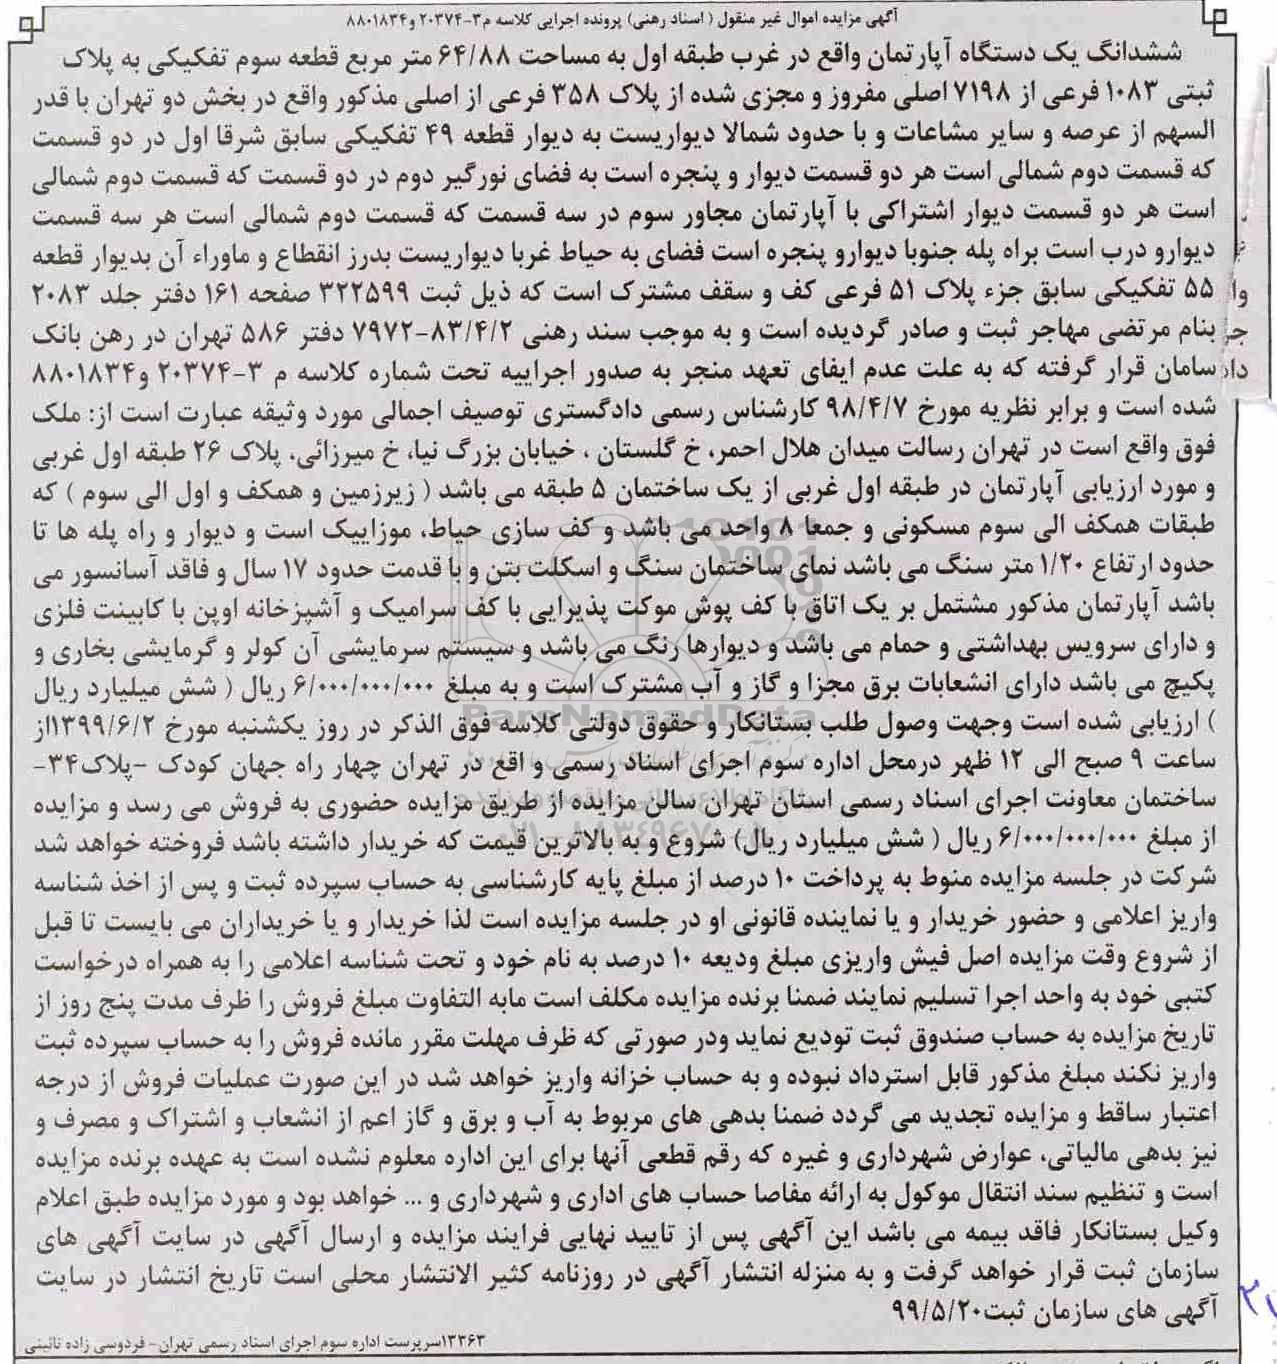 آگهی مزایده اموال غیر منقول ( اسناد رهنی) پرونده اجرایی کلاسه م۳-۲۰۳۷۴ و۸۸۰۱۸۳۴
ششدانگ یک دستگاه آپارتمان واقع در غرب طبقه اول به مساحت ۶۴/۸۸ متر مربع قطعه سوم تفکیکی به پلاک
ثبتی ۱۰۸۳ فرعی از ۷۱۹۸ اصلی مفروز و مجزی شده از پلاک ۳۵۸ فرعی از اصلی مذکور واقع در بخش دو تهران با قدر
السهم از عرصه و سایر مشاعات و با حدود شمالا دیواریست به دیوار قطعه ۴۹ تفکیکی سابق شرقا اول در دو قسمت
که قسمت دوم شمالی است هر دو قسمت دیوار و پنجره است به فضای نورگیر دوم در دو قسمت که قسمت دوم شمالی
است هر دو قسمت دیوار اشتراکی با آپارتمان مجاور سوم در سه قسمت که قسمت دوم شمالی است هر سه قسمت
دیوارو درب است براه پله جنوبا دیوارو پنجره است فضای به حیاط غربا دیواریست بدرز انقطاع و ماوراء آن بدیوار قطعه
۵۵ تفکیکی سابق جزء پلاک ۵۱ فرعی کف و سقف مشترک است که ذیل ثبت ۳۲۲۵۹۹ صفحه ۱۶۱ دفتر جلد ۲۰۸۳
بنام مرتضی مهاجر ثبت و صادر گردیده است و به موجب سند رهنی ۸۳/۴/۲-۷۹۷۲ دفتر ۵۸۶ تهران در رهن بانک
سامان قرار گرفته که به علت عدم ایفای تعهد منجر به صدور اجراییه تحت شماره کلاسه م ۳-۲۰۳۷۴ و۸۸۰۱۸۳۴
شده است و برابر نظریه مورخ ۹۸/۴/۷ کارشناس رسمی دادگستری توصیف اجمالی مورد وثیقه عبارت است از: ملک
فوق واقع است در تهران رسالت میدان هلال احمر، خ گلستان ، خیابان بزرگ نیا، خ میرزائی، پلاک ۲۶ طبقه اول غربی
و مورد ارزیابی آپارتمان در طبقه اول غربی از یک ساختمان ۵ طبقه می باشد ( زیرزمین و همکف و اول الی سوم ) که
طبقات همکف الی سوم مسکونی و جمعا ۸ واحد می باشد و کف سازی حیاط، موزاییک است و دیوار و راه پله ها تا
حدود ارتفاع ۱/۲۰ متر سنگ می باشد نمای ساختمان سنگ و اسکلت بتن و با قدمت حدود ۱۷ سال و فاقد آسانسور می
باشد آپارتمان مذکور مشتمل بر یک اتاق با کف پوش موکت پذیرایی با کف سرامیک و آشپزخانه اوپن با کابینت فلزی
و دارای سرویس بهداشتی و حمام می باشد و دیوارها رنگ می باشد و سیستم سرمایشی آن کولر و گرمایشی بخاری و
پکیج می باشد دارای انشعابات برق مجزا و گاز و آب مشترک است و به مبلغ ۶/۰۰۰/۰۰۰/۰۰۰ ریال ( شش میلیارد ریال
) ارزیابی شده است وجهت وصول طلب بستانکار و حقوق دولتی کلاسه فوق الذکر در روز یکشنبه مورخ ۱۳۹۹/۶/۲از
ساعت ۹ صبح الی ۱۲ ظهر درمحل اداره سوم اجرای اسناد رسمی و اقع در تهران چهار راه جهان کودک -پلاک۳۴-
ساختمان معاونت اجرای اسناد رسمی استان تهران سالن مزایده از طریق مزایده حضوری به فروش می رسد و مزایده
از مبلغ ۶/۰۰۰/۰۰۰/۰۰۰ ریال ( شش میلیارد ریال) شروع و به بالاترین قیمت که خریدار داشته باشد فروخته خواهد شد
شرکت در جلسه مزایده منوط به پرداخت ۱۰ درصد از مبلغ پایه کارشناسی به حساب سپرده ثبت و پس از اخذ شناسه
واریز اعلامی و حضور خریدار و یا نماینده قانونی او در جلسه مزایده است لذا خریدار و یا خریداران می بایست تا قبل
از شروع وقت مزایده اصل فیش واریزی مبلغ ودیعه ۱۰ درصد به نام خود و تحت شناسه اعلامی را به همراه درخواست
کتبی خود به واحد اجرا تسلیم نمایند ضمنا برنده مزایده مکلف است مابه التفاوت مبلغ فروش را ظرف مدت پنج روز از
تاریخ مزایده به حساب صندوق ثبت تودیع نماید ودر صورتی که ظرف مهلت مقرر مانده فروش را به حساب سپرده ثبت
واریز نکند مبلغ مذکور قابل استرداد نبوده و به حساب خزانه واریز خواهد شد در این صورت عملیات فروش از درجه
اعتبار ساقط و مزایده تجدید می گردد ضمنا بدهی های مربوط به آب و برق و گاز اعم از انشعاب و اشتراک و مصرف و
نیز بدهی مالیاتی، عوارض شهرداری و غیره که رقم قطعی آنها برای این اداره معلوم نشده است به عهده برنده مزایده
است و تنظیم سند انتقال موکول به ارائه مفاصا حساب های اداری و شهرداری و ... خواهد بود و مورد مزایده طبق اعلام
وکیل بستانکار فاقد بیمه می باشد این آگهی پس از تایید نهایی فرایند مزایده و ارسال آگهی در سایت آگهی های
سازمان ثبت قرار خواهد گرفت و به منزله انتشار آگهی در روزنامه کثیر الانتشار محلی است تاریخ انتشار در سایت
آگهی های سازمان ثبت۹۹/۵/۲۰
۱۳۳۶۳سرپرست اداره سوم اجرای اسناد رسمی تهران- فردوسی زاده نائینی
ParsNamadData